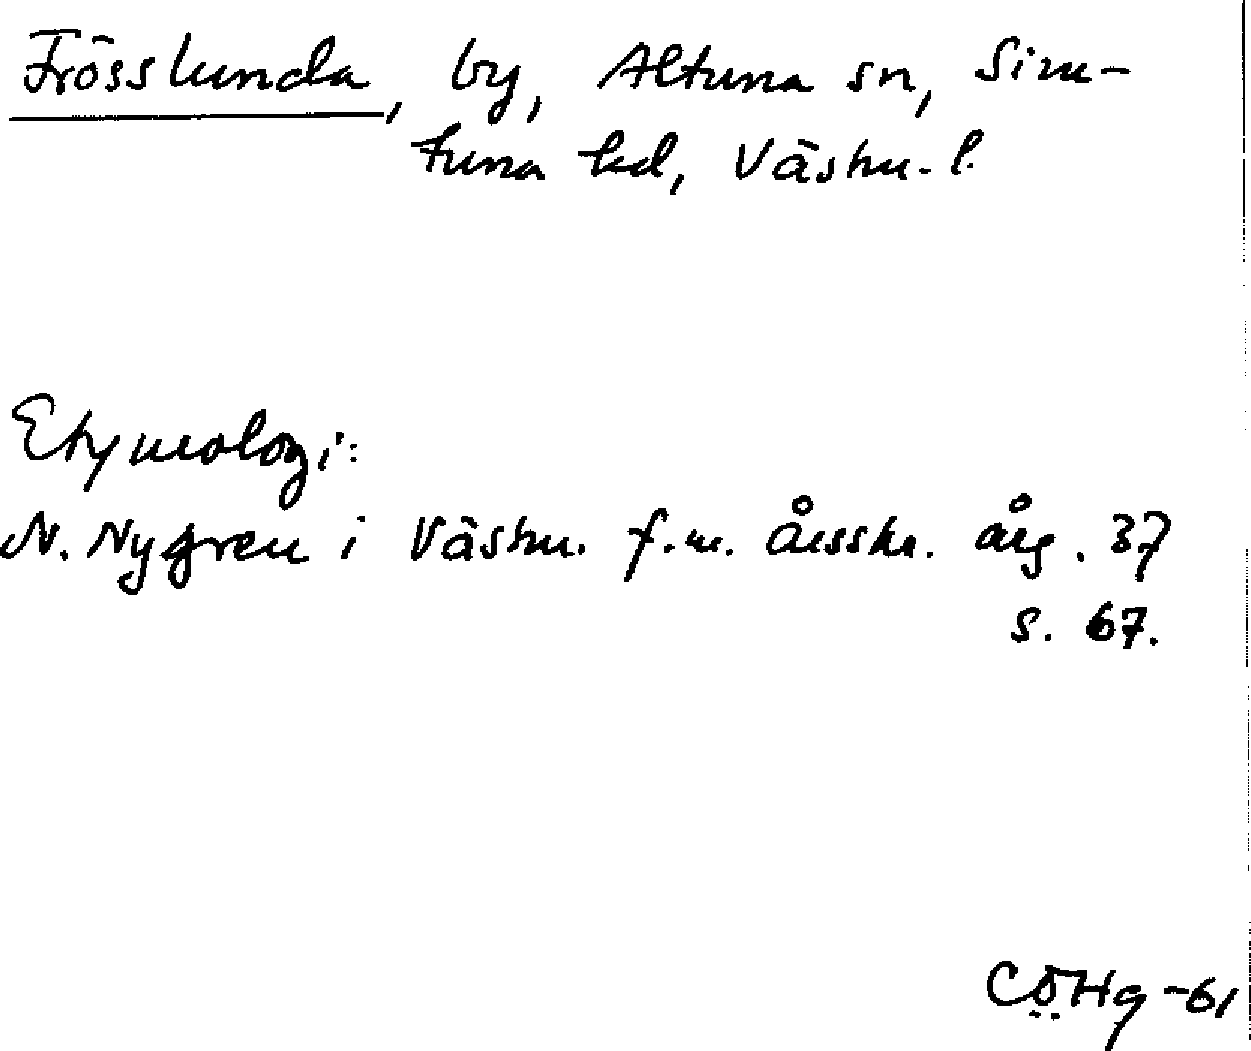 Frösslunda, by, Altuna sn, Sim-
tuna hd, Västm. l.
Etymologi:
N. Nygren i Västm. f.m. årsskr. årg. 37
s. 67.
CÖHg -61